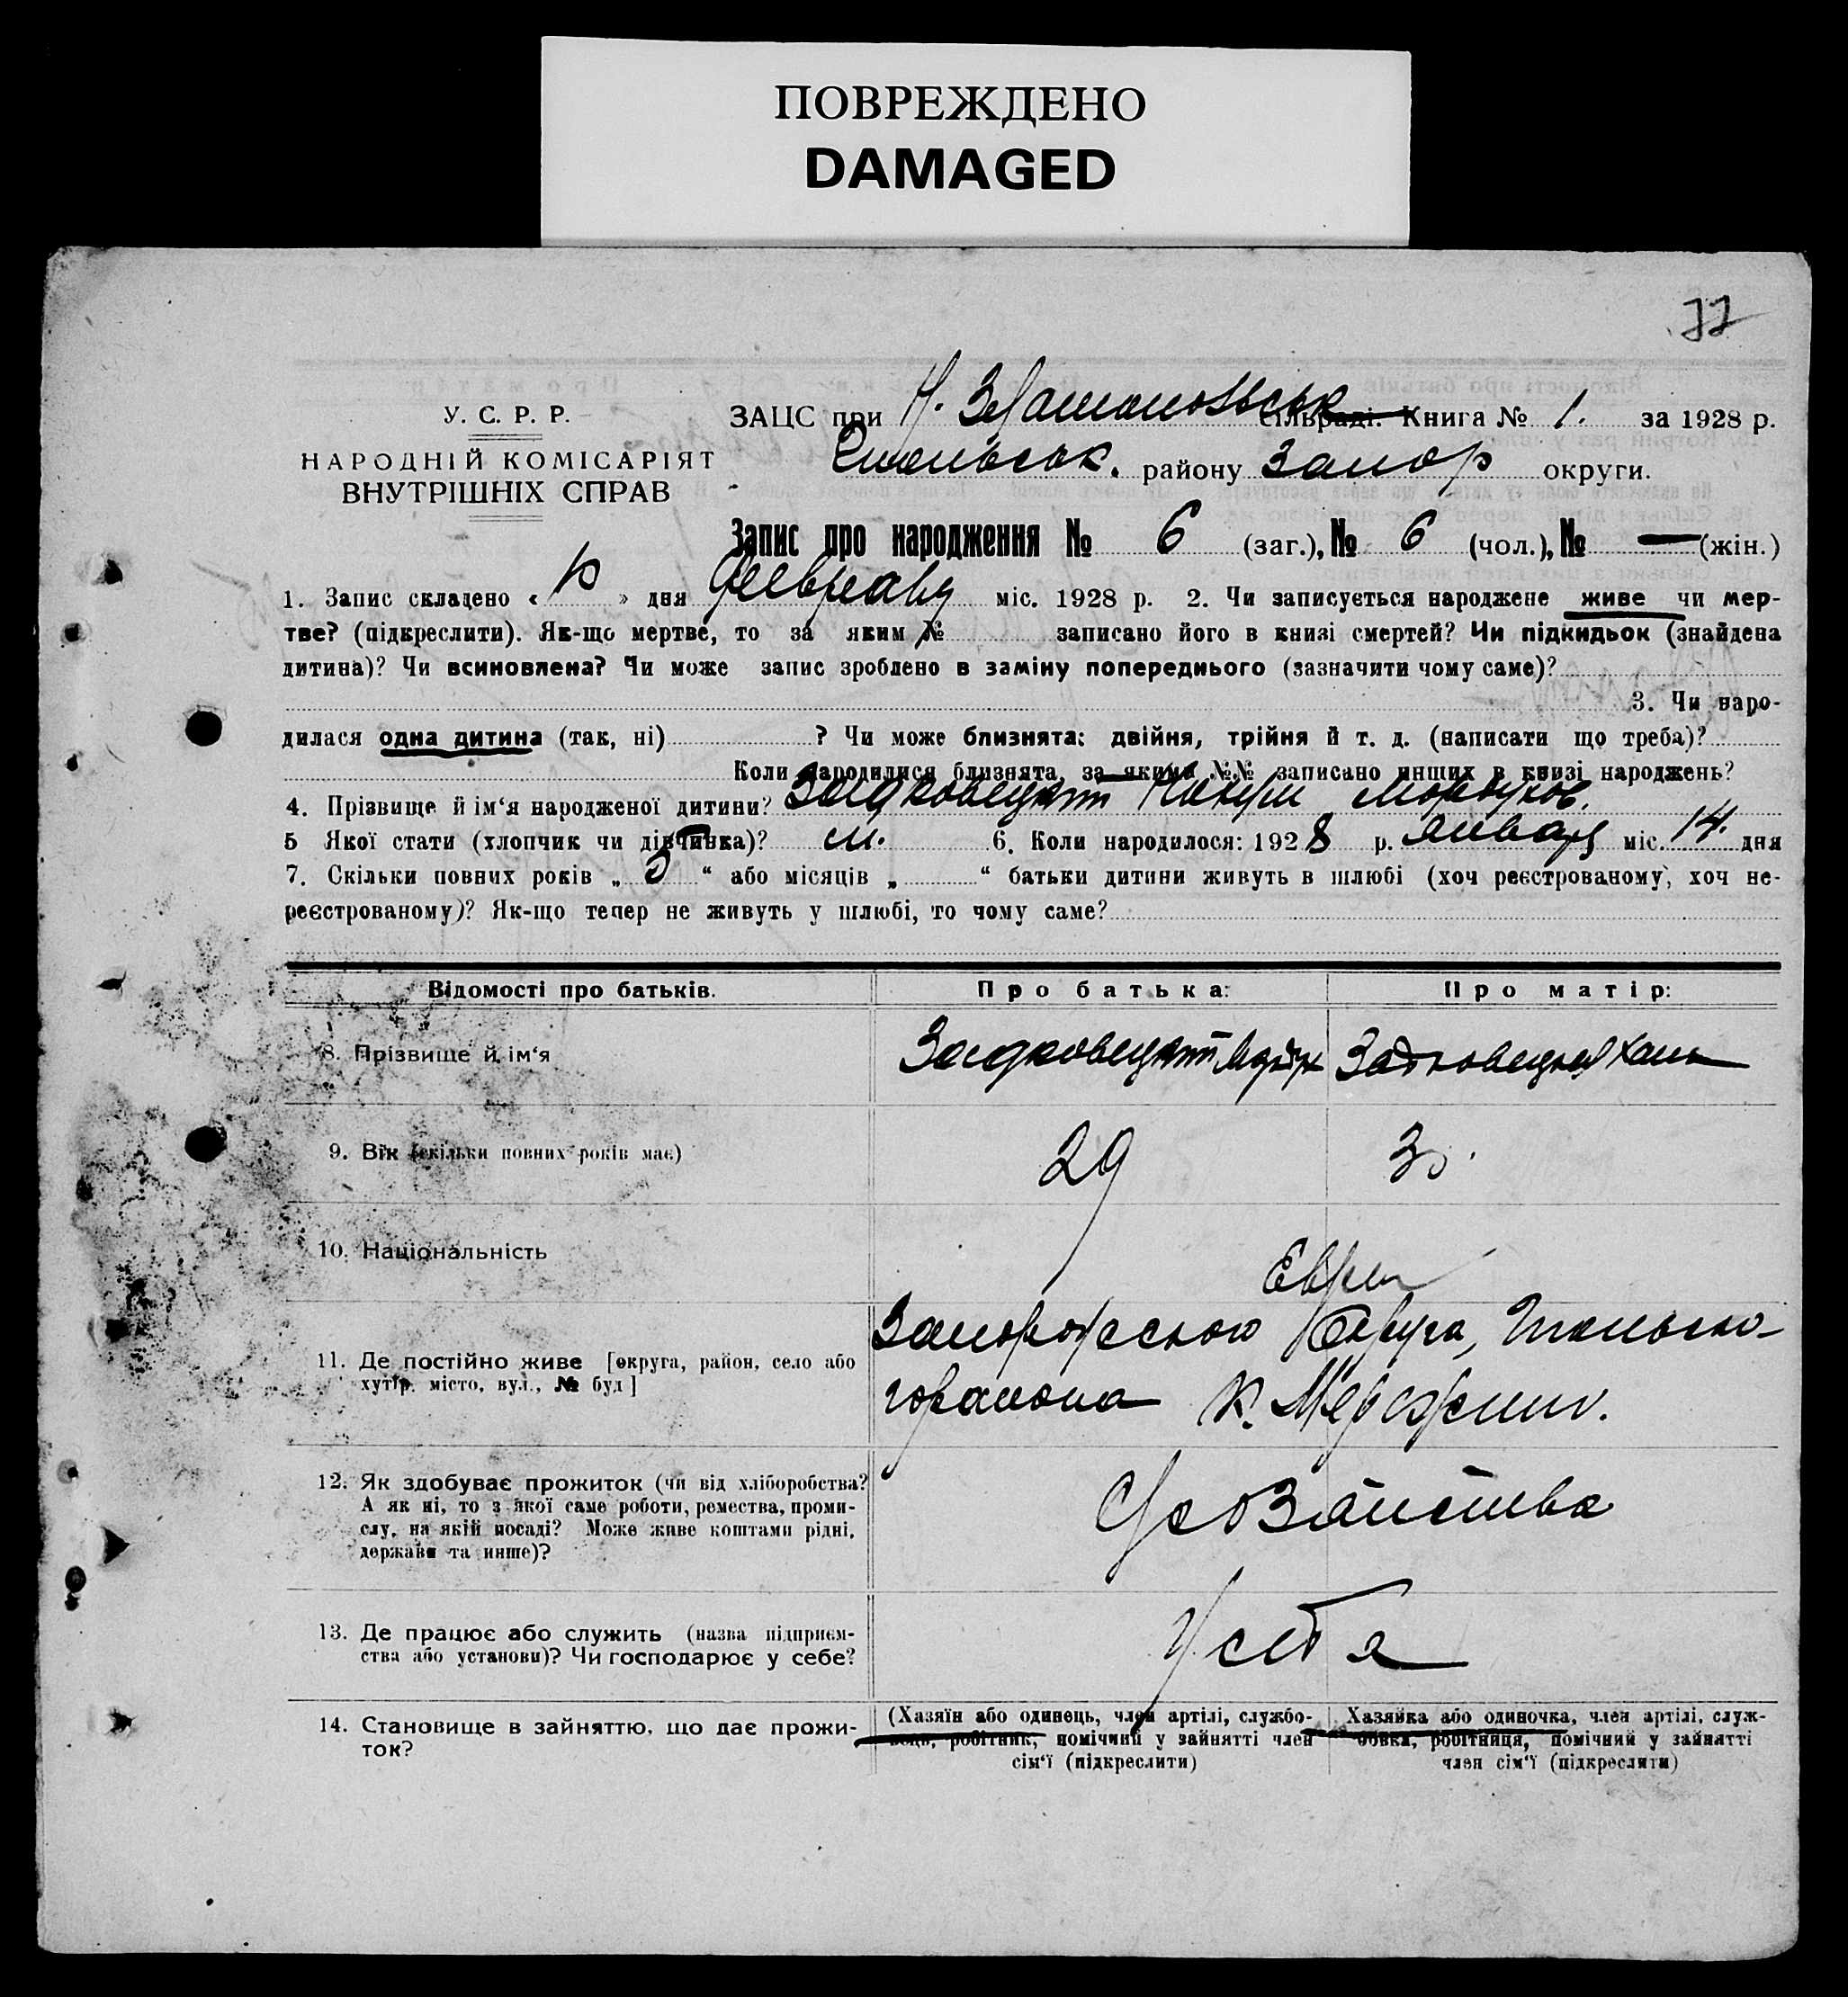 ПОВРЕЖДЕНО
DAMAGED
У. С. Р. Р.
НАРОДНІЙ КОМІСАРІЯТ
ВНУТРІШНІХ СПРАВ
ЗАЦС при Н. Златопольськ сільраді. Книга № 1. за 1928 р.
району Запор округи.
Запис про народження № 6 (заг.), № 6 (чол.), № — (жін.)
1. Запис складено « » дня февраля міс. 1928 р. 2. Чи записується народжене живе чи мер-
тве? (підкреслити). Як-що мертве, то за яким № записано його в книзі смертей? Чи підкидьок (знайдена
дитина)? Чи всиновлена? Чи може запис зроблено в заміну попереднього (зазначити чому саме)?
3. Чи наро-
дилася одна дитина (так, ні) ? Чи може близнята: двійня, трійня й т. д. (написати що треба)?
Коли народилися близнята, за якими №№ записано инших в книзі народжень?
4. Прізвище й ім'я народженої дитини?
5 Якої стати (хлопчик чи дівчинка)? м. 6. Коли народилося: 1928 р. января міс. 14. дня
7. Скільки повних років „ 5 “ або місяців „ “ батьки дитини живуть в шлюбі (хоч реєстрованому, хоч не-
реєстрованому)? Як-що тепер не живуть у шлюбі, то чому саме?
Відомості про батьків. Про батька: Про матір:
8. Прізвище й ім'я
9. Вік (скільки повних років має) 29 30.
10. Національність Евреи
11. Де постійно живе [округа, район, село або
хутір, місто, вул., № буд]
Запорожского Округа,
района к.
12. Як здобуває прожиток (чи від хліборобства?
А як ні, то з якої саме роботи, ремества, проми-
слу, на якій посаді? Може живе коштами рідні,
держави та инше)?
13. Де працює або служить (назва підприєм-
ства або установи)? Чи господарює у себе?
У себя
14. Становище в зайняттю, що дає прожи-
ток?
(Хазяїн або одинець, член артілі, службо-
вець, робітник, помічний у зайнятті член
сім'ї (підкреслити)
Хазяйка або одиночка, член артілі, служ-
бовка, робітниця, помічний у зайнятті
член сім'ї (підкреслити)